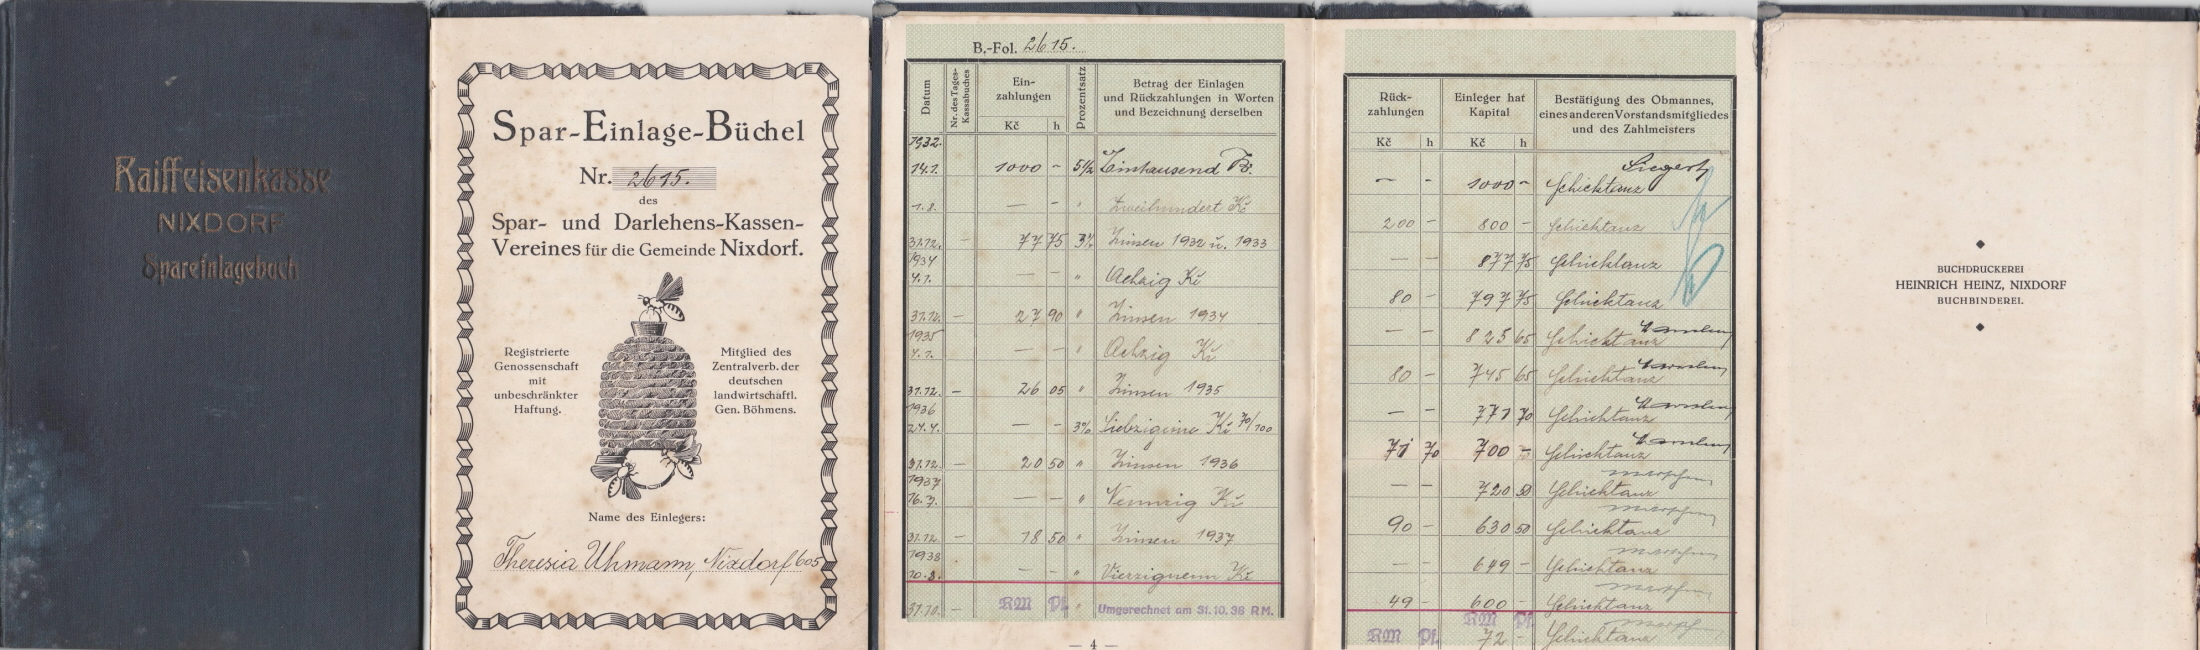 Raiffeisenkasse
NIXDORF
Spareinlagebuch
Spar-Einlage-Büchel
Nr. 2615.
des
Spar- und Darlehens-Kassen-
Vereines für die Gemeinde Nixdorf.
Registrierte
Genossenschaft
mit
unbeschränkter
Haftung.
Mitglied des
Zentralverb. der
deutschen
landwirtschaftl.
Gen. Böhmens.
Name des Einlegers:
Theresia Uhmann, Nixdorf 605
B.-Fol. 2615.
Datum
Nr. des Tages-
Kassabuches
Ein-
zahlungen
Kč h
Prozentsatz
Betrag der Einlagen
und Rückzahlungen in Worten
und Bezeichnung derselben
1932.
14.1. 1000 - 5½ Einthausend
1.8. — - " Zweihundert Kč
31.12. - 77 75 3% Zinsen 1932 u. 1933
1934
4.1. — - " Achzig Kč
31.12. - 27 90 " Zinsen 1934
1935
4.1. — - " Achzig Kč
31.12. - 26 05 " Zinsen 1935
1936
24.4. — - 3% Siebzigeins Kč 70/100
31.12. - 20 50 " Zinsen 1936
1937
16.7. — - " Neunzig Kč
31.12. - 18 50 " Zinsen 1937
1938
10.8. — - " Vierzigneun Kč
31.10. - RM Pf. " Umgerechnet am 31.10.38 RM.
— 4 —
Rück-
zahlungen
Kč h
Einleger hat
Kapital
Kč h
Bestätigung des Obmannes,
eines anderen Vorstandsmitgliedes
und des Zahlmeisters
Siegert
— - 1000 - Schicktanz
200 - 800 - Schicktanz
— - 877 75 Schicktanz
80 - 797 75 Schicktanz
— - 825 65 Schicktanz
80 - 745 65 Schicktanz
— - 771 70 Schicktanz
71 70 700 - Schicktanz
— - 720 50 Schicktanz
90 - 630 50 Schicktanz
— - 649 - Schicktanz
49 - 600 - Schicktanz
RM Pf.
RM Pf. 72 - Schicktanz
BUCHDRUCKEREI
HEINRICH HEINZ, NIXDORF
BUCHBINDEREI.